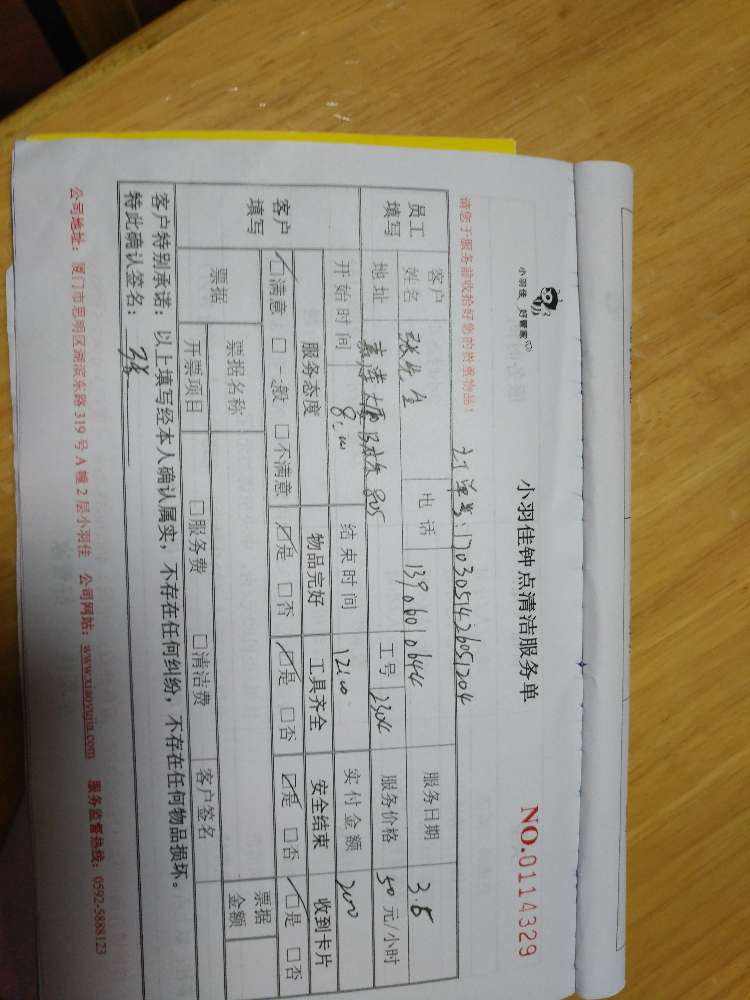 小羽佳 好管家
小羽佳钟点清洁服务单 NO.0114329
请您于服务前收拾好您的贵重物品!
订单号:1703051426051204
员工填写 客户姓名 张先生 电话 13906010644 服务日期 3.5
地址 大厦 805 工号 1204 服务价格 50 元/小时
开始时间 8:00 结束时间 12:00 实付金额 200
客户填写 服务态度 物品完好 工具齐全 安全结束 收到卡片
☑满意 □一般 □不满意 ☑是 □否 ☑是 □否 ☑是 □否 ☑是 □否
票据 票据名称 票据金额
开票项目 □服务费 □清洁费 客户签名
客户特别承诺:以上填写经本人确认属实,不存在任何纠纷,不存在任何物品损坏。
特此确认签名:张
公司地址:厦门市思明区湖滨东路 319 号 A 幢 2 层小羽佳 公司网站:www.xiaoyujia.com 服务监督热线:0592-5888123